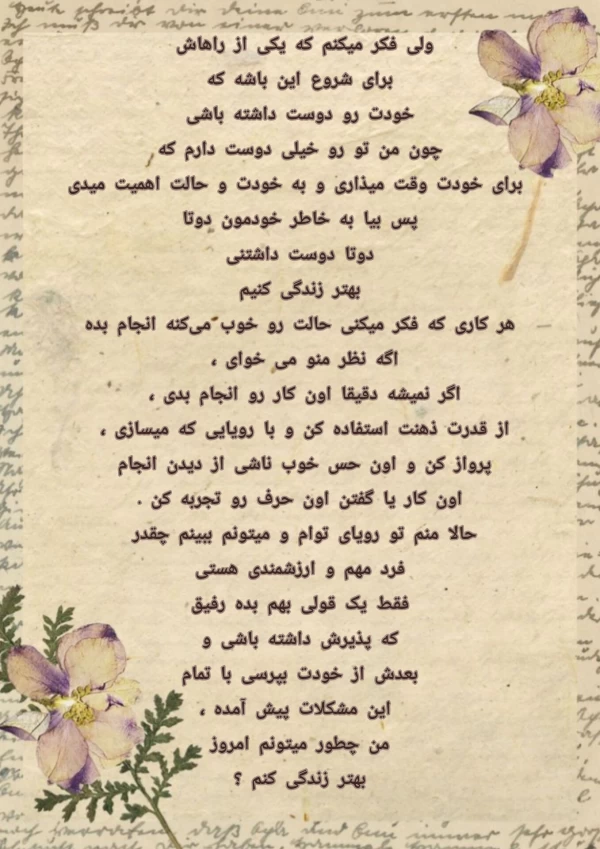 ولی فکر میکنم که یکی از راهاش
برای شروع این باشه که
خودت رو دوست داشته باشی
چون من تو رو خیلی دوست دارم که
برای خودت وقت میذاری و به خودت و حالت اهمیت میدی
پس بیا به خاطر خودمون دوتا
دوتا دوست داشتنی
بهتر زندگی کنیم
هر کاری که فکر میکنی حالت رو خوب می‌کنه انجام بده
اگه نظر منو می خوای ،
اگر نمیشه دقیقا اون کار رو انجام بدی ،
از قدرت ذهنت استفاده کن و با رویایی که میسازی ،
پرواز کن و اون حس خوب ناشی از دیدن انجام
اون کار یا گفتن اون حرف رو تجربه کن .
حالا منم تو رویای توام و میتونم ببینم چقدر
فرد مهم و ارزشمندی هستی
فقط یک قولی بهم بده رفیق
که پذیرش داشته باشی و
بعدش از خودت بپرسی با تمام
این مشکلات پیش آمده ،
من چطور میتونم امروز
بهتر زندگی کنم ؟